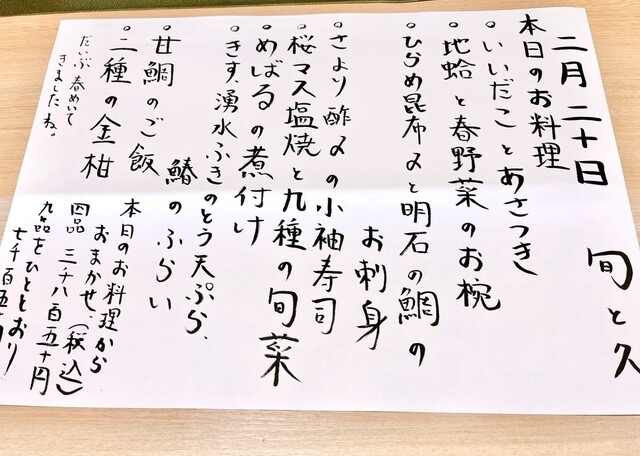 二月二十日
旬と久
本日のお料理
・いいだことあさつき
・地蛤と春野菜のお椀
・ひらめ昆布〆と明石の鯛の
お刺身
・さより酢〆の小袖寿司
・桜マス塩焼と九種の旬菜
・めばるの煮付け
・きす、湧水ふきのとう天ぷら、
鰆のふらい
・甘鯛のご飯
・二種の金柑
だいぶ春めいて
きましたね。
本日のお料理から
おまかせ、(税込)
四品 三千八百五十円
九品をひととおり
七千百五